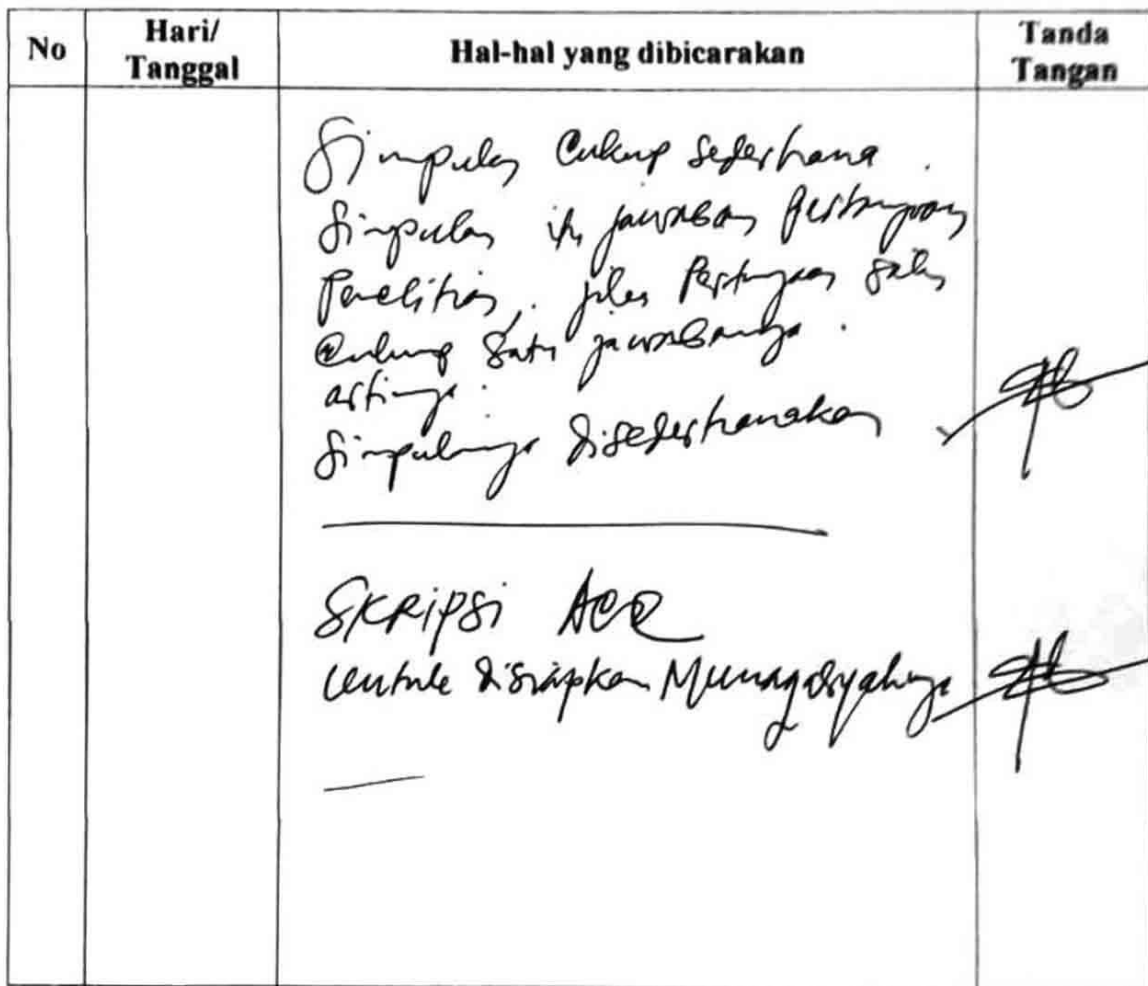 No
Hari/
Tanggal
Hal-hal yang dibicarakan
Tanda
Tangan
Simpulan Cukup Sederhana.
Simpulan itu jawaban Pertanyaan
Penelitian. jika Pertanyaan satu
Cukup Satu jawabannya.
artinya.
Simpulannya Disederhanakan
SKRIPSi ACC
Untuk Disiapkan Munaqasyahnya